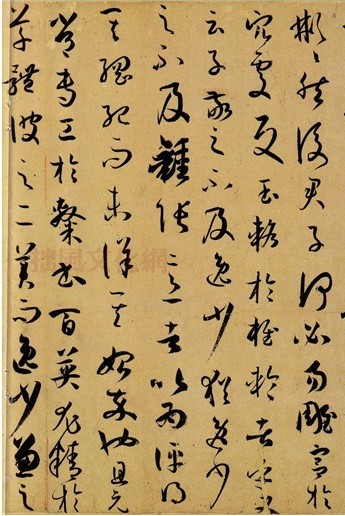 彬彬然後君子何必易雕宮於
穴處反玉輅於椎輪者乎又
云子敬之不及逸少猶逸少
之不及鍾張意者以為評得
其綱紀而未詳其始卒也且元
常專工於隸書百英尤精於
草體彼之二美而逸少兼之
拙風文化網